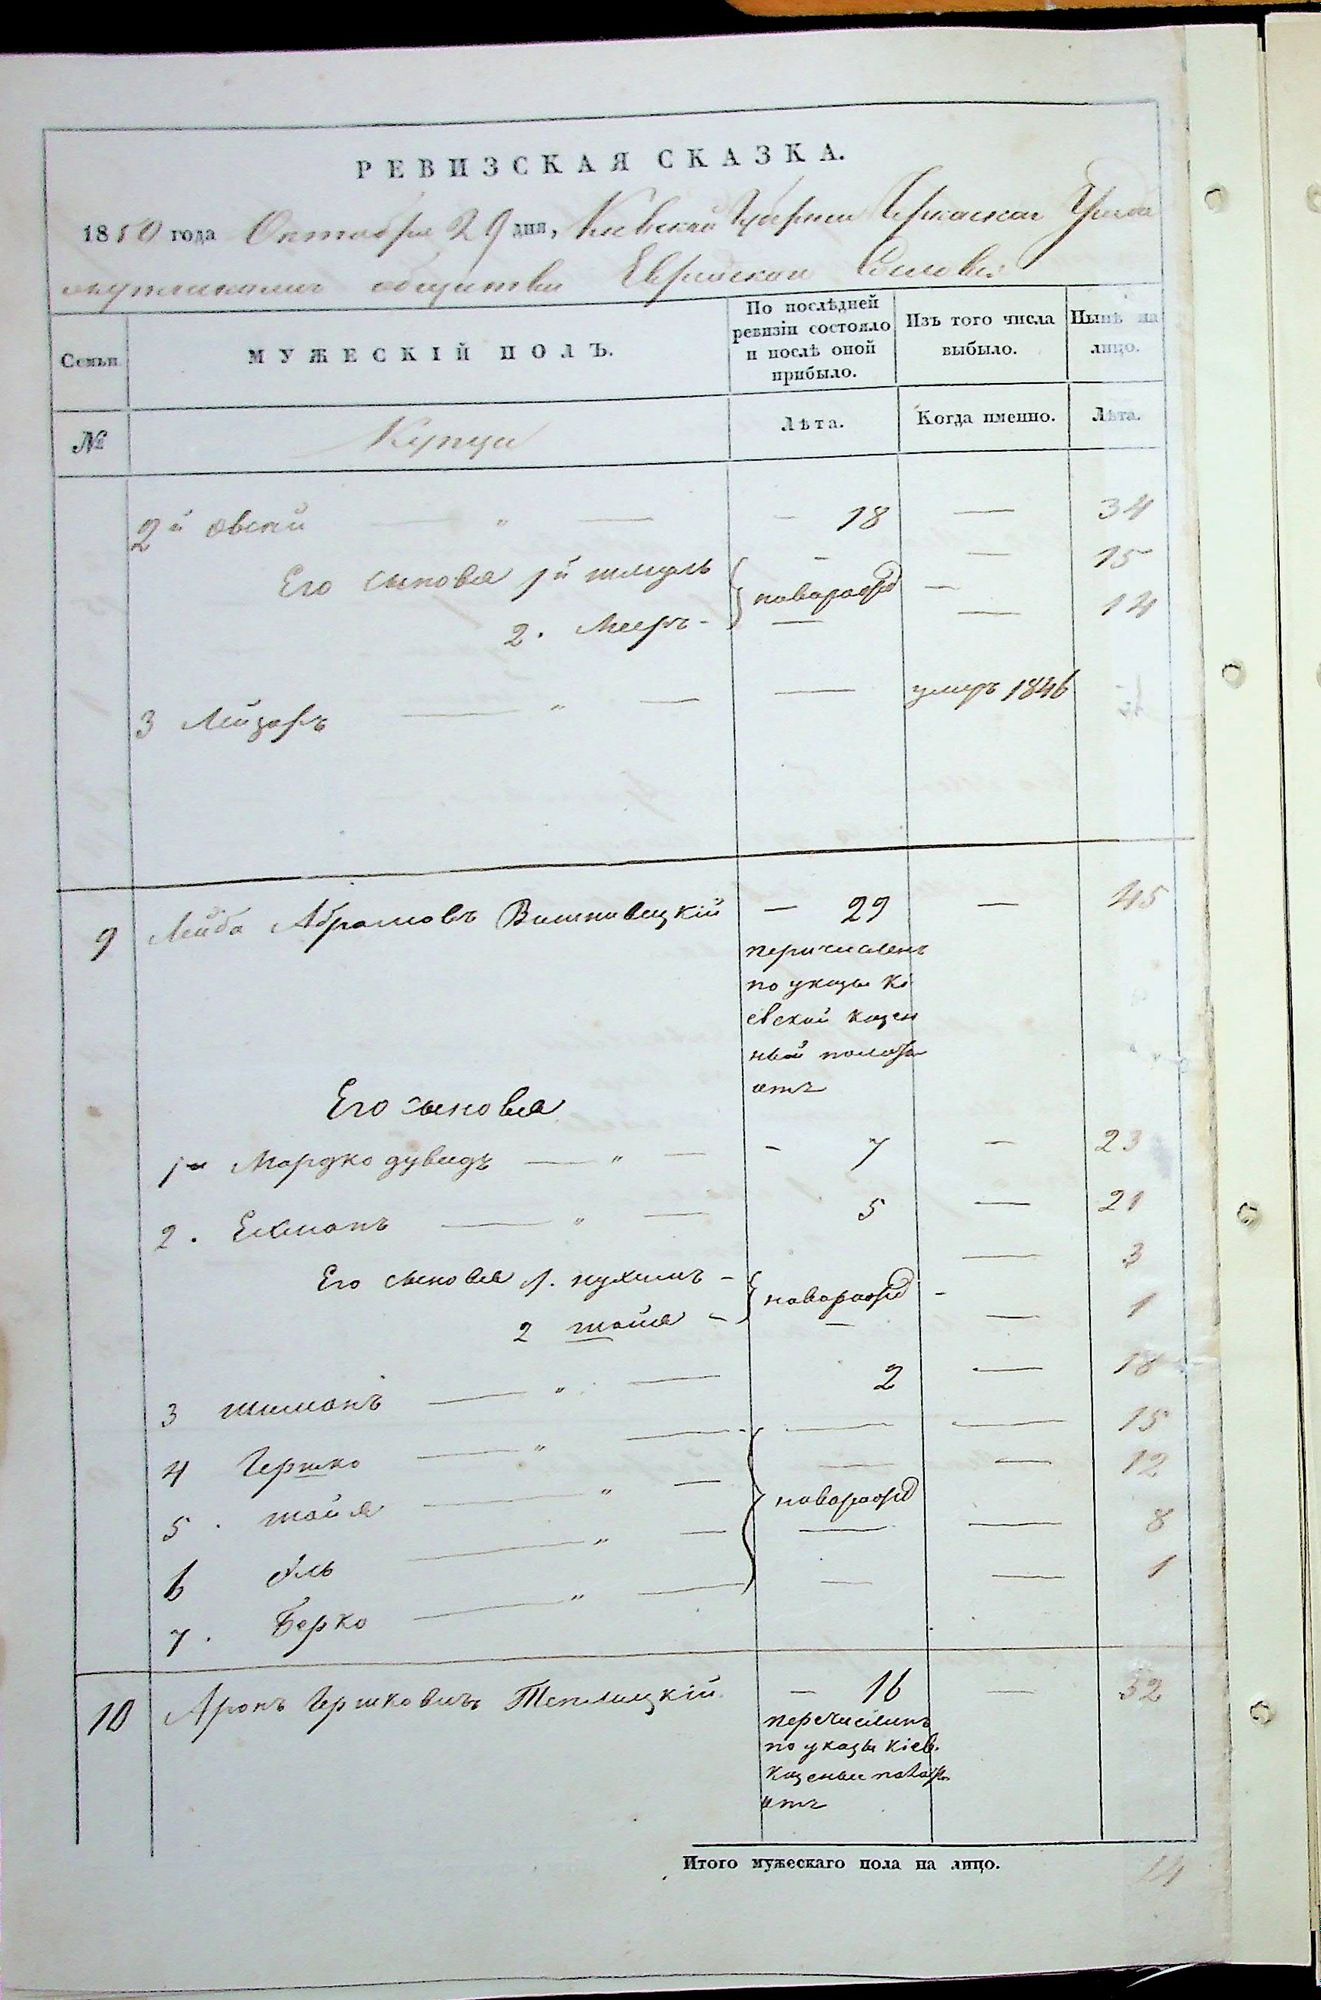 РЕВИЗСКАЯ СКАЗКА.
1850 года Октября 29 дня, Киевской Губернии Черкаскаго Уезда
общества Еврейскаго Сословия
Семьи.
МУЖЕСКІЙ ПОЛЪ.
По послѣдней ревизіи состояло и послѣ оной прибыло.
Изъ того числа выбыло.
Нынѣ на лицо.
№
Купци
Лѣта.
Когда именно.
Лѣта.
2й Овсий — " — — 18 — 34
Его сыновья 1й Шмуль — — 15
новорожд —
2. Меер - — — 14
3 Лейзаръ — " — — умеръ 1846
9 Лейба Абрамовъ Вишновецкій — 29 — 45
перичисленъ
по указу Ки
евской казен
ной полаты
отъ
Его сыновья
1й Мордко дувидъ — " — - 7 — 23
2. Екеманъ — " — 5 — 21
Его сыновья 1. нухимъ - — 3
новорожд -
2 шаия - — — 1
3 шиманъ — " — 2 — 18
4 Гершко — " — — — 15
5. шаия — " — — — 12
новорожд
6 Эль — " — — — 8
7. Берко — " — — — 1
10 Аронъ Гершковичъ Теплицкій. — 16 — 32
перечисленъ
по указу Кіев.
казеные палаты
отъ
Итого мужескаго пола на лицо. 14